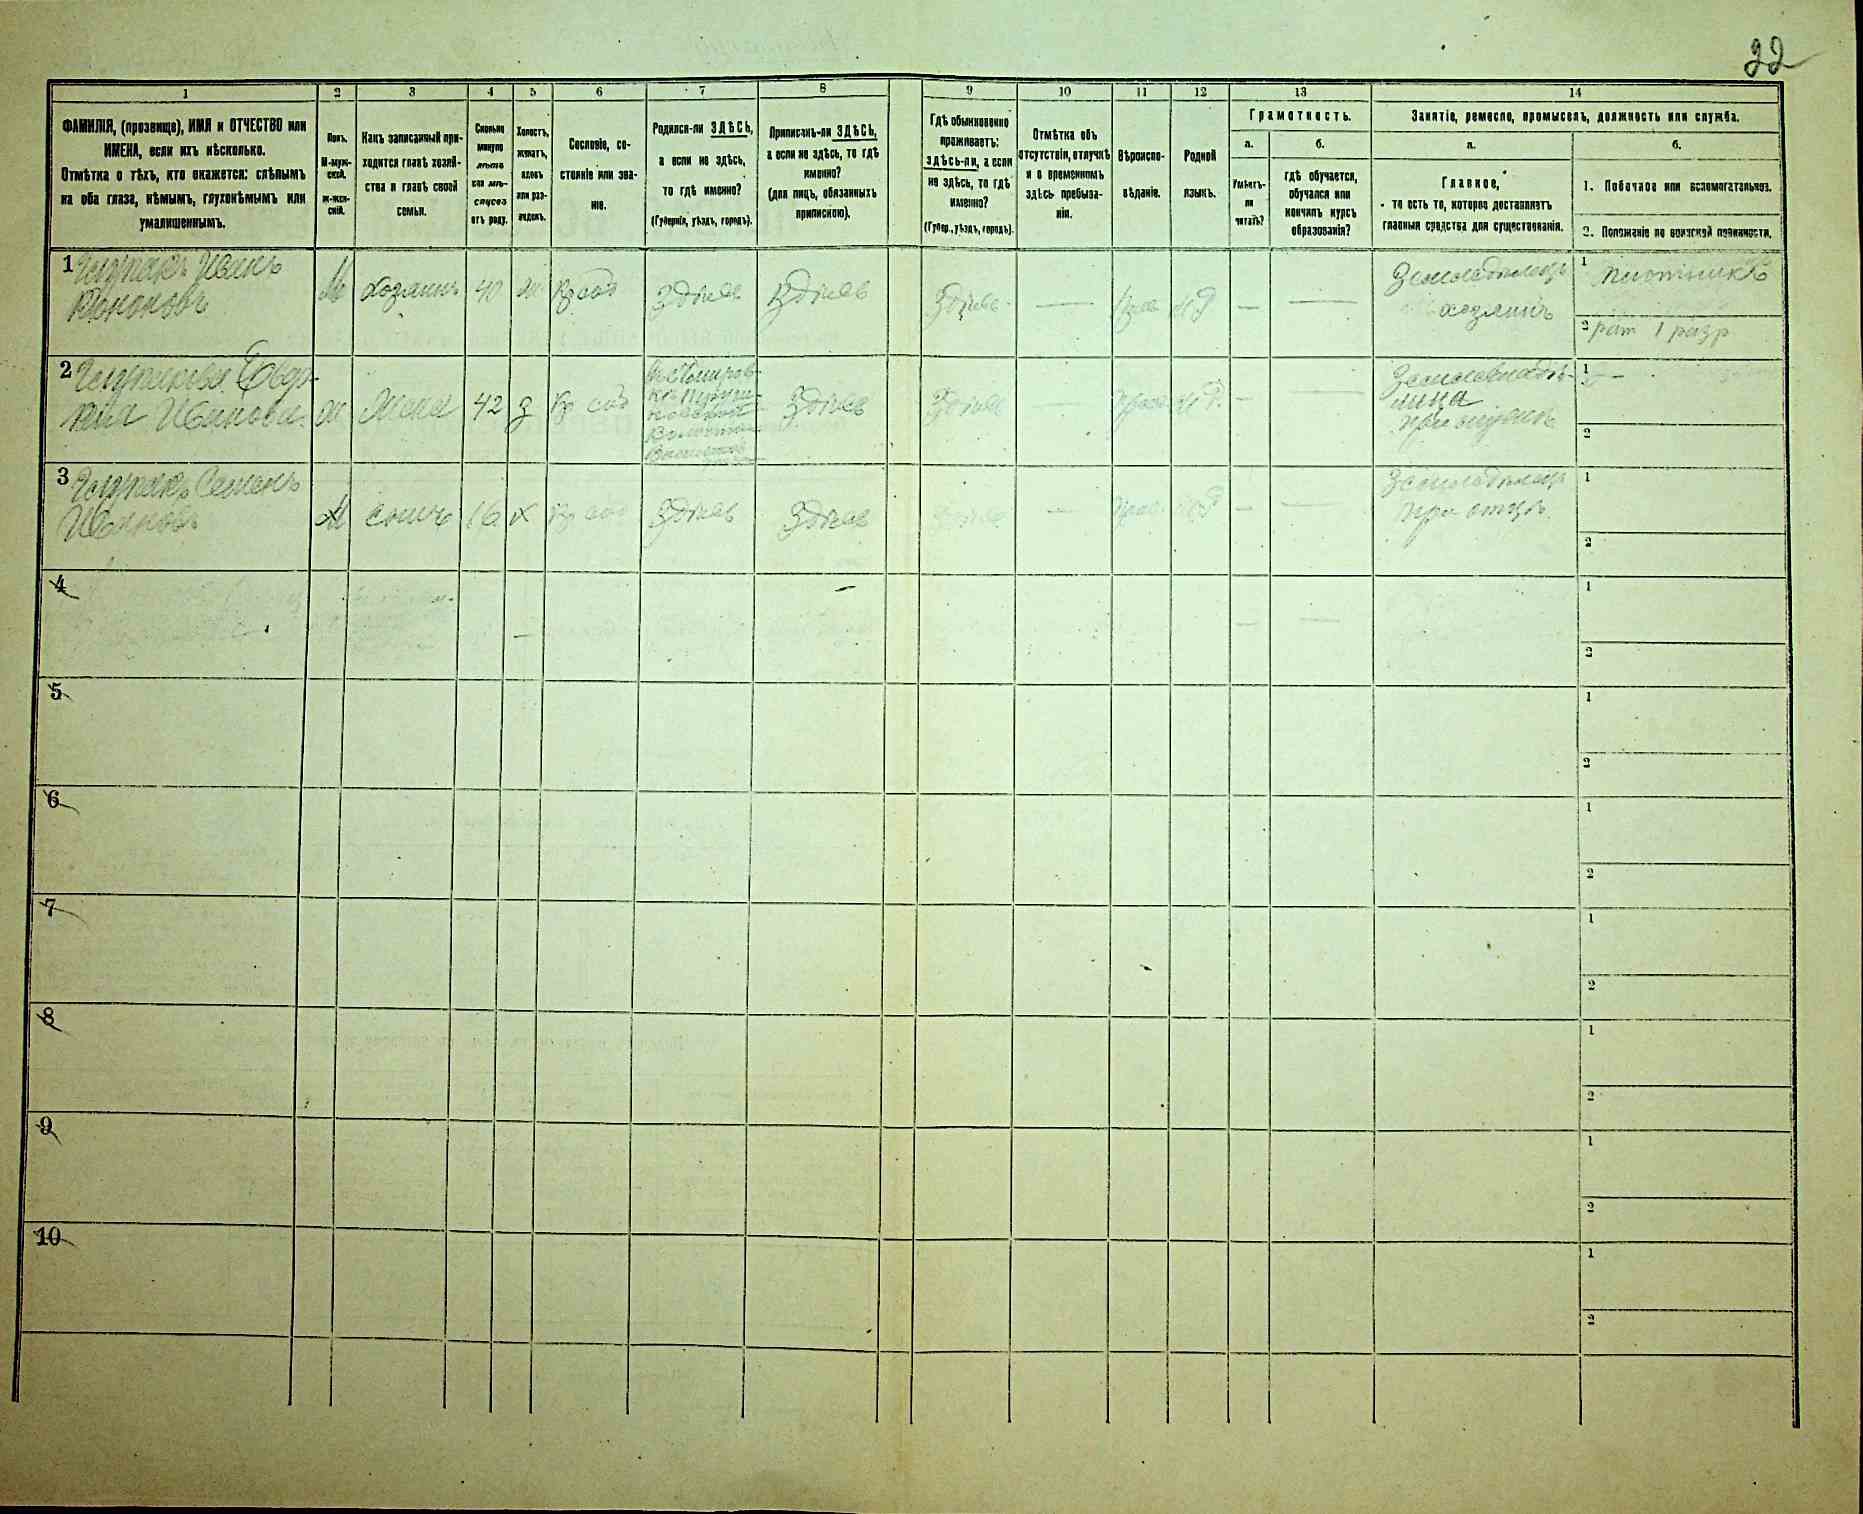 22
1
2
3
4
5
6
7
8
9
10
11
12
13
14
ФАМИЛІЯ, (прозвище), ИМЯ и ОТЧЕСТВО или
ИМЕНА, если ихъ нѣсколько.
Отмѣтка о тѣхъ, кто окажется: слѣпымъ
на оба глаза, нѣмымъ, глухонѣмымъ или
умалишеннымъ.
Полъ.
М-муж-
ской.
ж-жен-
скій.
Какъ записанный при-
ходится главѣ хозяй-
ства и главѣ своей
семьи.
Сколько
минуло
лѣтъ
или мѣ-
сяцевъ
отъ роду.
Холостъ,
женатъ,
вдовъ
или раз-
веденъ.
Сословіе, со-
стояніе или зва-
ніе.
Родился-ли ЗДѢСЬ,
а если не здѣсь,
то гдѣ именно?
(Губернія, уѣздъ, городъ).
Приписанъ-ли ЗДѢСЬ,
а если не здѣсь, то гдѣ
именно?
(для лицъ, обязанныхъ
припискою).
Гдѣ обыкновенно
проживаетъ:
здѣсь-ли, а если
не здѣсь, то гдѣ
именно?
(Губер., уѣздъ, городъ).
Отмѣтка объ
отсутствіи, отлучкѣ
и о временномъ
здѣсь пребыва-
ніи.
Вѣроиспо-
вѣданіе.
Родной
языкъ.
Грамотность.
а.
Умѣетъ-
ли
читать?
б.
гдѣ обучается,
обучался или
кончилъ курсъ
образованія?
Занятіе, ремесло, промыселъ, должность или служба.
а.
Главное,
то есть то, которое доставляетъ
главныя средства для существованія.
б.
1. Побочное или вспомогательное.
2. Положеніе по воинской повинности.
1 Иванъ
Кононовъ
М
хозяинъ
40
ж
Кр соб
Здѣсь
Здѣсь
Здѣсь
—
—
—
Земледѣлецъ
хозяинъ
1 плотникъ
2 рат 1 разр
2
Иванова
ж
Жена
42
з
Кр соб
Здѣсь
Здѣсь
—
—
при мужѣ
1 —
2
3 Семенъ
Ивановъ
М
сынъ
16
х
Кр соб
Здѣсь
Здѣсь
—
—
—
Земледѣлецъ
при отцѣ
1
2
4
1
2
5
1
2
6
1
2
7
1
2
8
1
2
9
1
2
10
1
2